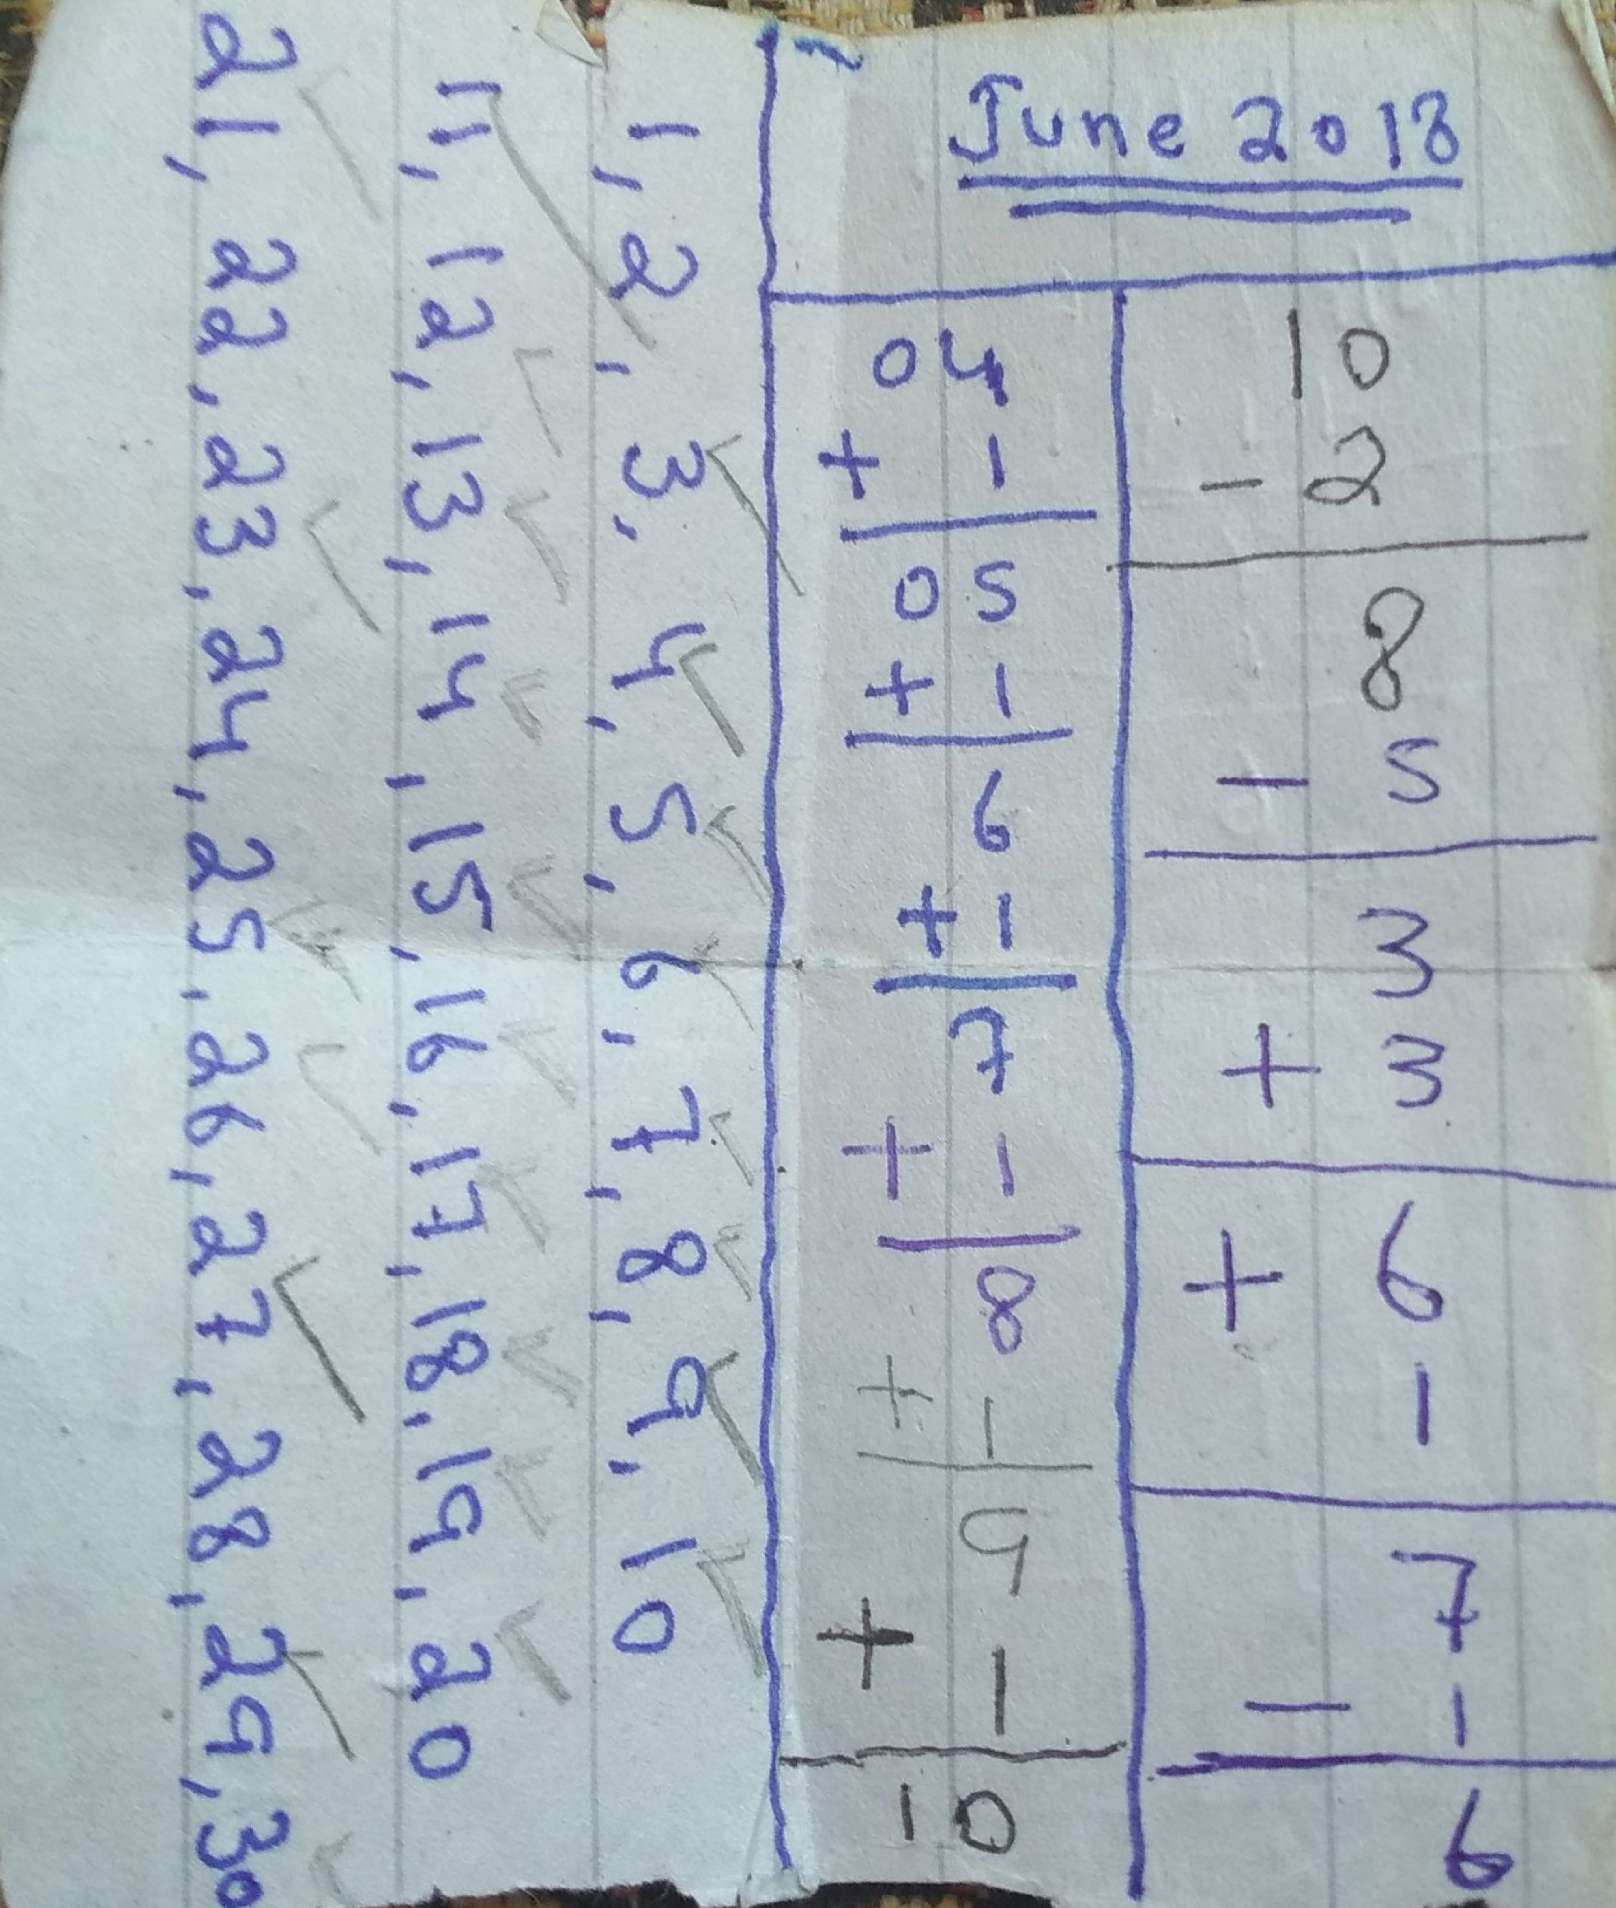 June 2018
04
+ 1
05
+ 1
6
+ 1
7
+ 1
8
+ 1
9
+ 1
10
10
- 2
8
- 5
3
+ 3
+ 6
1
7
- 1
6
1, 2, 3, 4, 5, 6, 7, 8, 9, 10
11, 12, 13, 14, 15, 16, 17, 18, 19, 20
21, 22, 23, 24, 25, 26, 27, 28, 29, 30